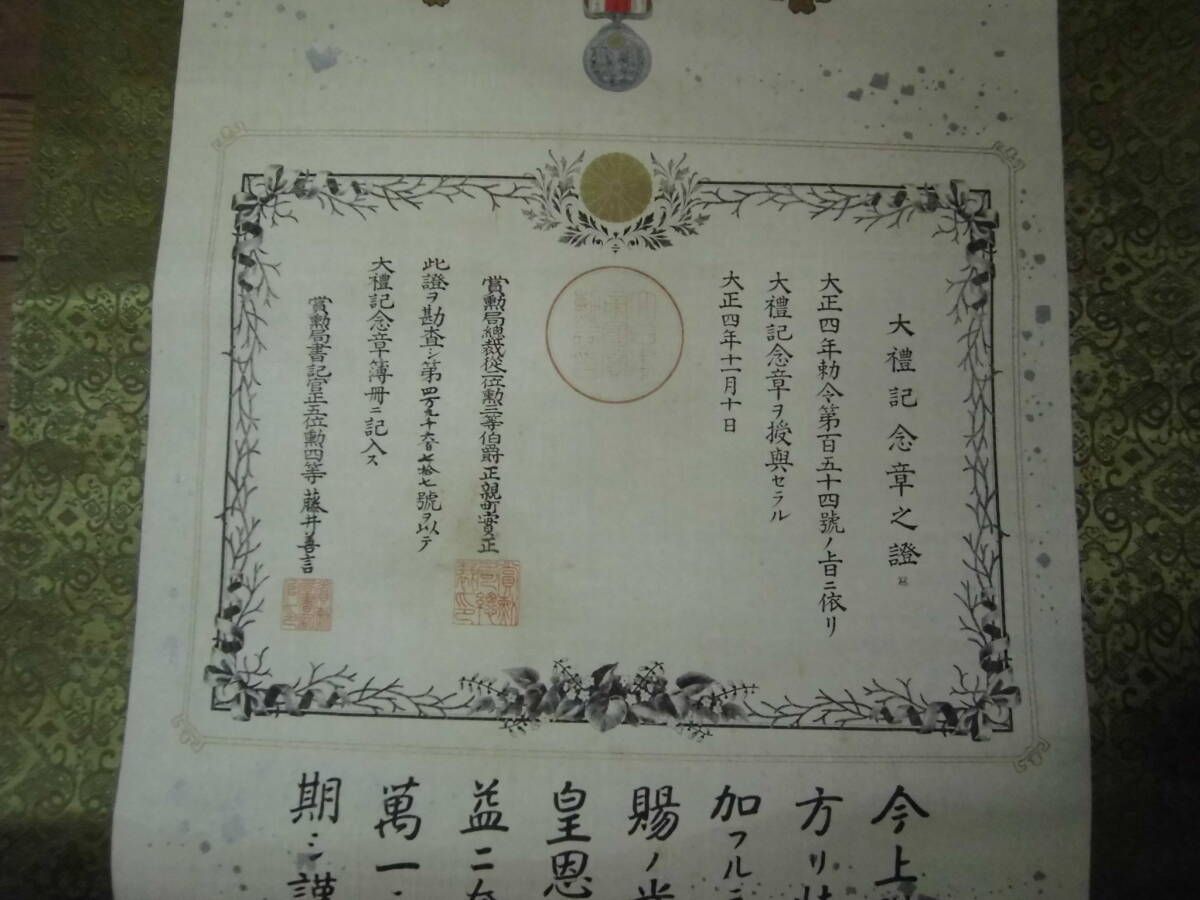 大禮記念章之證
大正四年勅令第百五十四號ノ上旨ニ依リ
大禮記念章ヲ授與セラル
大正四年十一月十日
賞勲局總裁從二位勲三等伯爵正親町實正
此證ヲ勘査シ第四万九千六百七拾七號ヲ以テ
大禮記念章簿冊ニ記入ス
賞勲局書記官正五位勲四等藤井善言
今上
方リ
加フルニ
賜ノ
皇恩
益ニ
萬一
期シ謹